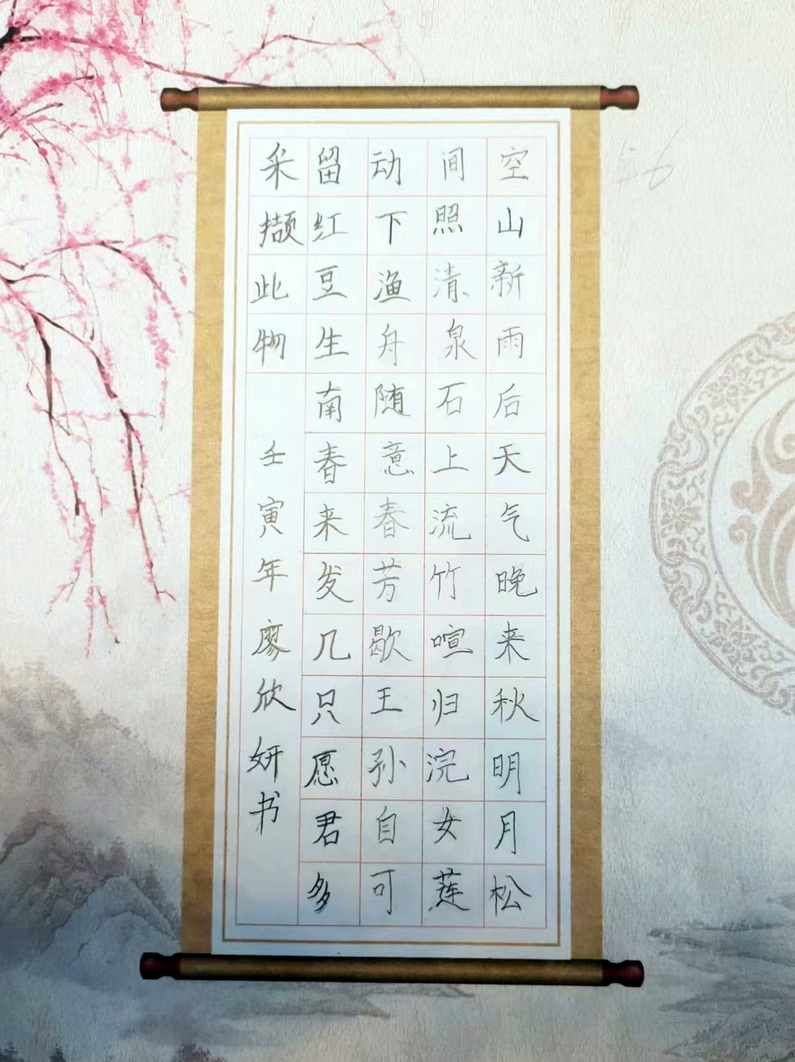 空山新雨后天气晚来秋明月松
间照清泉石上流竹喧归浣女莲
动下渔舟随意春芳歇王孙自可
留红豆生南春来发几只愿君多
采撷此物 壬寅年廖欣妍书